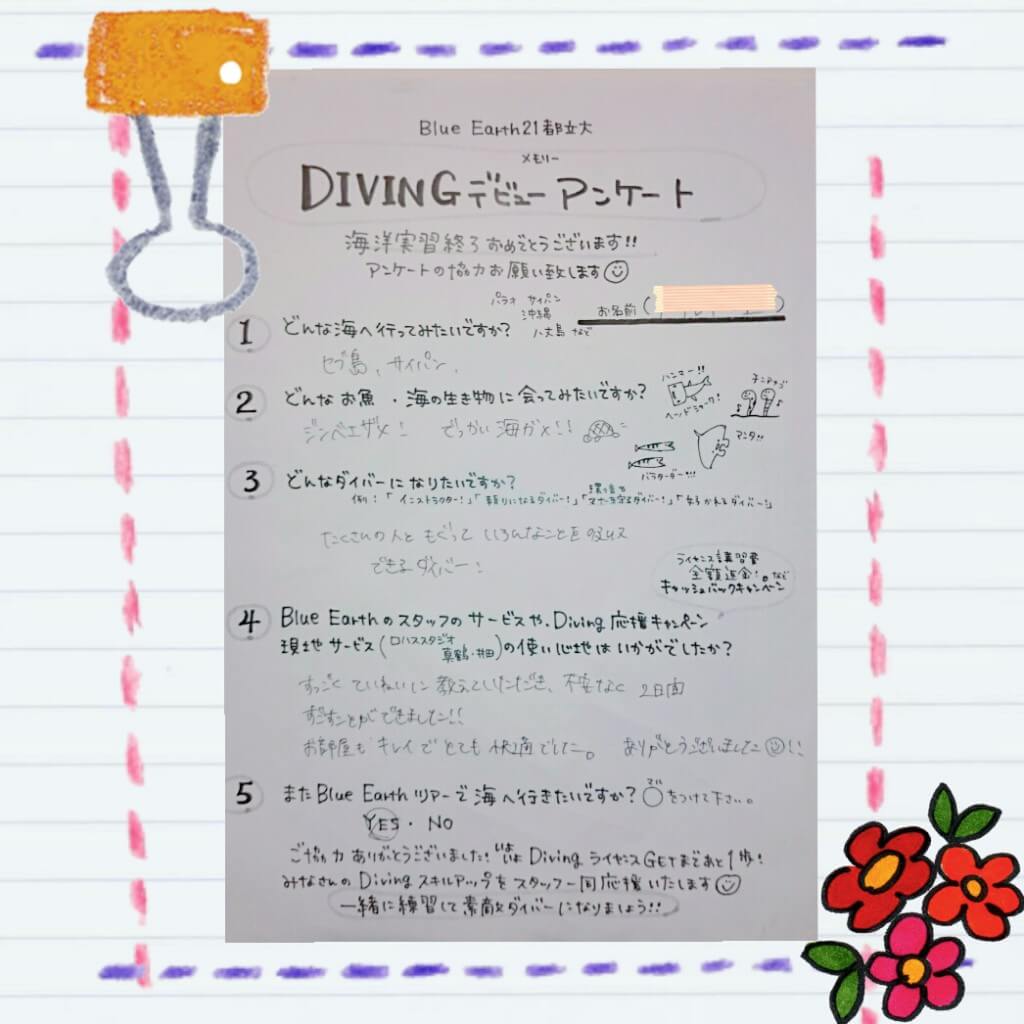 Blue Earth21都立大
メモリー
DIVINGデビューアンケート
海洋実習終了おめでとうございます!!
アンケートの協力お願い致します
お名前(
1 どんな海へ行ってみたいですか?
パラオ サイパン
沖縄
八丈島 など
セブ島、サイパン、
2 どんなお魚・海の生き物に会ってみたいですか?
ハンマー!!
ヘッドシャーク!
チンアナゴ
マンタ!!
バラクーダー!!!
ジンベエザメ! でっかい海ガメ!!
3 どんなダイバーになりたいですか?
例:「インストラクター!」「頼りになるダイバー!」「環境とマナーを守るダイバー!」「
たくさんの人ともぐっていろんなことを吸収
できるダイバー!
ライセンス講習費
全額返金!。など
キャッシュバックキャンペーン
4 Blue Earthのスタッフのサービスや、Diving応援キャンペーン
現地サービス(ロハススタジオ
真鶴・井田)の使い心地はいかがでしたか?
すっごくていねいに教えていただき、不安なく2日間
すごすことができました!!
お部屋もキレイでとても快適でした。 ありがとうございました!!
5 またBlue Earthツアーで海へ行きたいですか?○をつけて下さい。
マル
YES・NO
ご協力ありがとうございました!いよいよDivingライセンスGETまであと1歩!
みなさんのDivingスキルアップをスタッフ一同応援いたします
一緒に練習して素敵ダイバーになりましょう!!